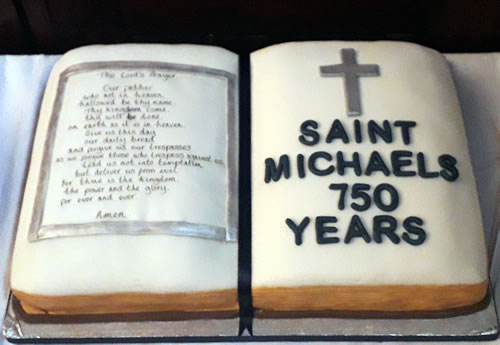 The Lord's Prayer
Our father
who art in heaven
hallowed be thy name
Thy kingdom come
thy will be done
on earth as it is in heaven
Give us this day
our daily bread
and forgive us our trespasses
as we forgive those who trespass against us
Lead us not into temptation
but deliver us from evil
For thine is the kingdom
the power and the glory
for ever and ever
Amen
SAINT
MICHAELS
750
YEARS